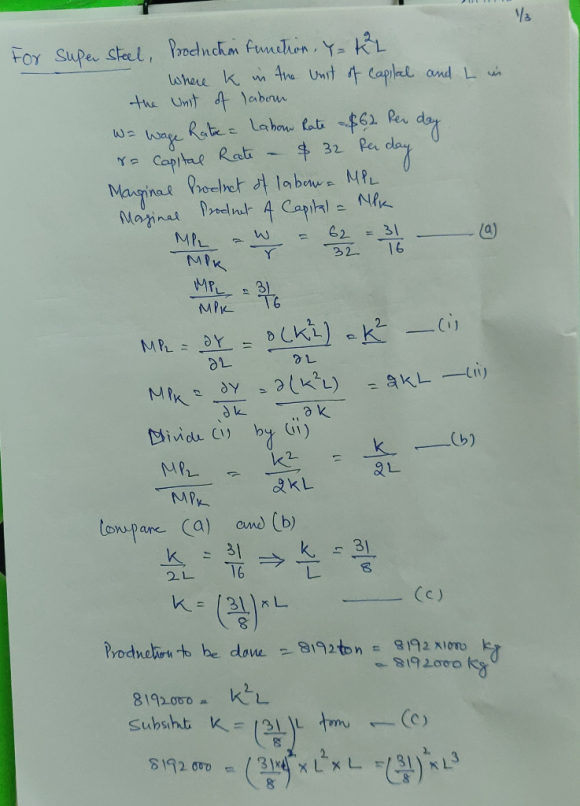 1/3
For Super Steel, Production function. Y = K²L
Where K is the Unit of Capital and L is
the Unit of labour
W = Wage Rate = Labour Rate = $62 Per day
r = Capital Rate - $ 32 Per day
Marginal Product of labour = MPL
Marginal Product of Capital = MPK
MPL/MPK = W/r = 62/32 = 31/16 —— (a)
MPL/MPK = 31/16
MPL = ∂Y/∂L = ∂(K²L)/∂L = K² — (i)
MPK = ∂Y/∂K = ∂(K²L)/∂K = 2KL — (ii)
Divide (i) by (ii)
MPL/MPK = K²/2KL = K/2L —— (b)
Compare (a) and (b)
K/2L = 31/16 ⇒ K/L = 31/8
K = (31/8) × L —— (c)
Production to be done = 8192 ton = 8192 × 1000 kg
= 8192000 kg
8192000 = K²L
Substitute K = (31/8)L from — (c)
8192000 = (31/8)² × L² × L = (31/8)² × L³